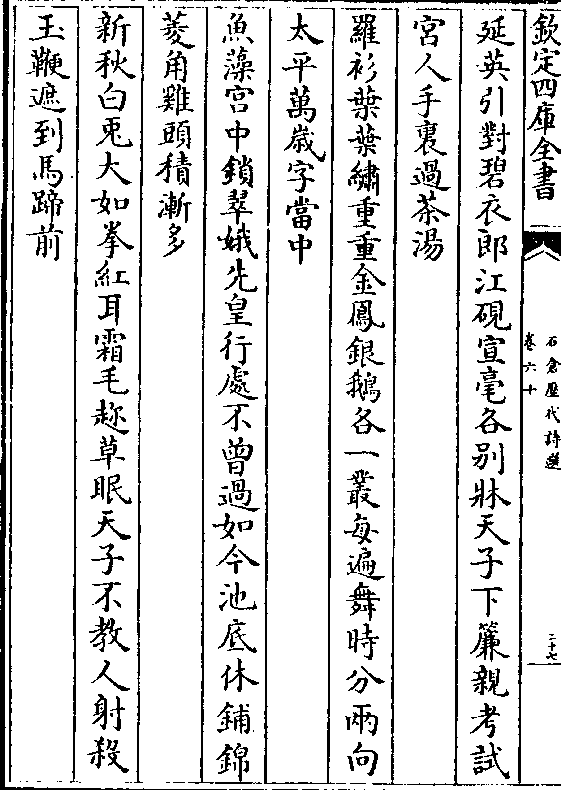 欽定四庫全書
石倉歷代詩選
卷六十
二十七
延英引對碧衣郎江硯宣毫各别牀天子下簾親考試
宮人手裏過茶湯
羅衫葉葉繡重重金鳳銀鵝各一叢每遍舞時分兩向
太平萬歲字當中
魚藻宮中鎖翠娥先皇行處不曾過如今池底休鋪錦
菱角雞頭積漸多
新秋白兎大如拳紅耳霜毛趂草眠天子不教人射殺
玉鞭遮到馬蹄前